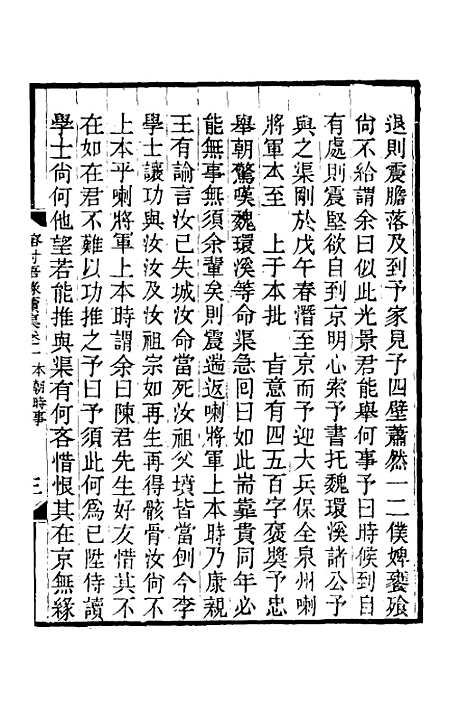 退則震膽落及到予家見予四壁蕭然一二僕婢饔飧
尙不給謂余曰似此光景君能舉何事予曰時候到自
有處則震堅欲自到京明心索予書托魏環溪諸公予
與之渠剛於戊午春潛至京而予迎大兵保全泉州喇
將軍本至　上于本批　旨意有四五百字褒獎予忠
舉朝驚嘆魏環溪等命渠急回曰如此耑靠貴同年必
能無事無須余輩矣則震遄返喇將軍上本時乃康親
王有諭言汝已失城汝命當死汝祖父墳皆當刨今李
學士讓功與汝及汝祖宗如再生再得骸骨汝尙不
上本乎喇將軍上本時謂余曰陳君先生好友惜其不
在如在君不難以功推之予曰予須此何爲已陞侍讀
學士尙何他望若能推與渠有何吝惜恨其在京無緣
榕村語錄續集卷十一本朝時事
三